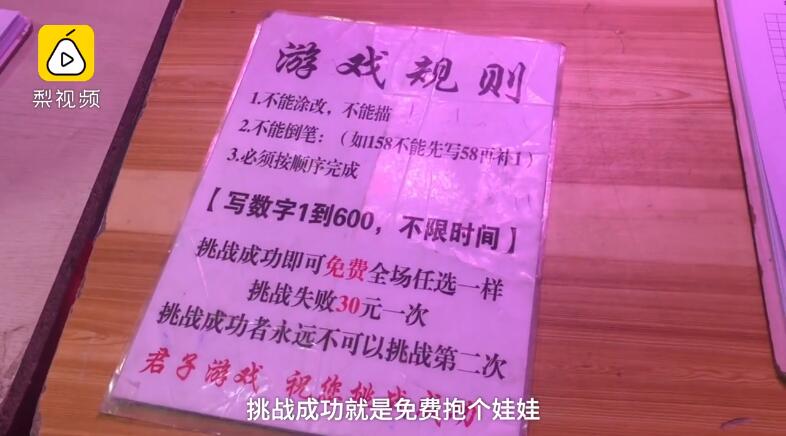 梨视频
游戏规则
1.不能涂改，不能描
2.不能倒笔：（如158不能先写58再补1）
3.必须按顺序完成
【写数字1到600，不限时间】
挑战成功即可免费全场任选一样
挑战失败30元一次
挑战成功者永远不可以挑战第二次
君子游戏 祝您挑战成功
挑战成功就是免费抱个娃娃